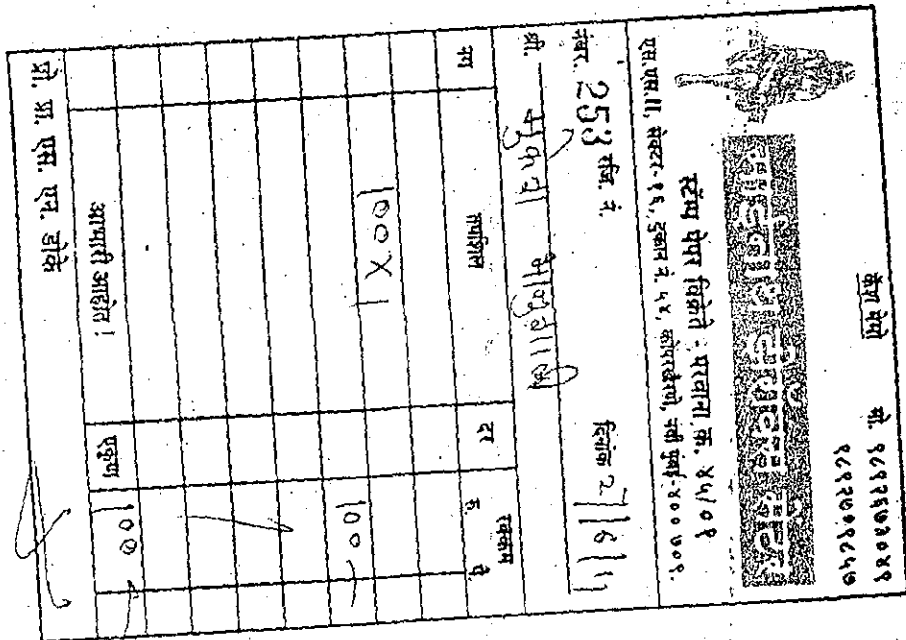 कॅश मेमो
मो. ९८९२६७४०४१
९८९२७०९८५७
स्टॅम्प पेपर विक्रेते : परवाना क्रं. ४५/०१
एस.एस.II, सेक्टर-१६, दुकान नं. ५४, कोपरखैरणे, नवी मुंबई-४०० ७०९.
नंबर. 253 रजि. नं. दिनांक
श्री.
नग तपशिल दर रक्कम
रु. पै.
100 X 1 100
आभारी आहोत! एकूण 100
प्रो. प्रा. एस. एन. डोके